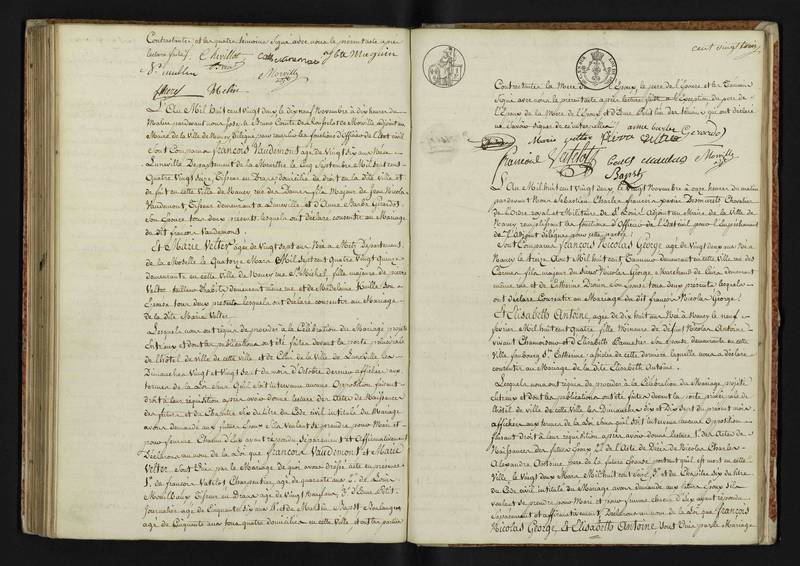 Contractantes et les quatre témoins signé avec nous le présent acte après
lecture faite. Chevillot Maquin
Morville
Velter
L'An Mil huit cent Vingt deux, le dix neuf Novembre à dix heures du
matin pardevant nous Comte de Morville adjoint au
Maire de la Ville de Nancy délégué pour remplir les fonctions d'Officier de l'état civil
Sont Comparus François Vaudemont âgé de Vingt six ans né à
Lunéville Département de la Meurthe le Cinq Septembre Mil sept cent
Quatre Vingt seize, domicilié de droit en la dite Ville et
de fait en cette Ville de Nancy rue fils Majeur de Jean Nicolas
Vaudemont, demeurant à Lunéville et d'Anne Barbe Gérardot
Son Epouse tous deux présents, lesquels ont déclaré consentir au Mariage
du dit françois Vaudemont.
Et Marie Velter âgée de Vingt sept ans Née à Metz Département
de la Moselle le Quatorze Mars Mil sept cent Quatre Vingt Quinze
demeurante en cette Ville de Nancy rue St Michel, fille majeure de pierre
Velter, tailleur d'habits demeurant même rue et de Madeleine Son
Epouse tous deux présents lesquels ont déclaré consentir au Mariage
de la dite Marie Velter.
Lesquels nous ont requis de procéder à la Célébration du Mariage projeté
Entr'eux et dont les publications ont été faites devant la porte principale
de l'hôtel de Ville de cette Ville et de Celle de la Ville de Lunéville les
Dimanches Vingt et Vingt sept du mois d'Octobre dernier affichées aux
termes de la Loi sans qu'il soit intervenu aucune Opposition faisant
droit à leur réquisition après avoir donné lecture des Actes de Naissances
des futurs et du Chapitre Six du titre du Code civil intitulé du Mariage
avons demandé aux futurs Epoux s'ils Veulent se prendre pour Mari et
pour femme Chacun d'eux ayant répondu séparément et Affirmativement
Déclarons au nom de la Loi que françois Vaudemont et Marie
Velter, sont Unis par le Mariage de quoi avons dressé acte en présence
1° de françois Vatelot Charpentier, âgé de quarante ans 2° de Louis
âgé de Vingt Neuf ans, 3°
Journalier âgé de Cinquante six ans et 4° de Bapst Boulanger,
âgé de Cinquante ans tous quatre domiciliés en cette Ville, et ont les parties
cent vingt trois
Contractantes la Mère de l'Epoux, le père de l'Epouse et les Témoins
Signé avec nous le présent acte après lecture faite à l'Exception du père de
l'Epoux de la Mère de l'Epouse et d' l'un des témoins qui ont déclaré
ne savoir signer de ce interpellés. anne barbe Gerardot
Marie velter Pierre velter
francois Vatelot Morville
Bapst
L'An Mil huit cent Vingt deux, le vingt Novembre à onze heures du matin
pardevant Nous Sébastien Charles françois Xavier Desmarets Chevalier
de l'Ordre royal et Militaire de St Louis adjoint au Maire de la Ville de
Nancy remplissant les fonctions d'Officier de l'état civil pour l'Empêchement
de l'Adjoint délégué pour cette partie.
Sont Comparus François Nicolas George, âgé de Vingt deux ans Né à
Nancy le treize Août Mil huit cent demeurant en cette Ville rue des
fils majeur du Sieur Nicolas George Marchand de demeurant
même rue et de Catherine Son Epouse tous deux présents lesquels
ont déclaré Consentir au Mariage du dit françois Nicolas George.
Et Elisabeth Antoine, âgée de dix huit ans Née à Nancy le neuf
février Mil huit cent Quatre, fille Mineure de défunt Nicolas Antoine
vivant Chamoiseur et d'Elisabeth Son Epouse demeurante en cette
Ville faubourg Ste Catherine assistée de cette dernière laquelle nous a déclaré
consentir au Mariage de la dite Elisabeth Antoine.
Lesquels nous ont requis de procéder à la Célébration du Mariage projeté
entr'eux et dont les publications ont été faites devant la porte principale de
l'hôtel de ville de cette Ville les Dimanches dix et Dix Sept du présent mois
affichées aux termes de la Loi sans qu'il soit intervenu aucune Opposition
faisant droit à leur réquisition après avoir donné lecture 1° des Actes de
Naissances des futurs Epoux 2° de l'Acte de Décès de Nicolas Charles
Alexandre Antoine père de la future Epouse, portant qu'il est mort en cette
Ville, le Vingt deux Mars Mil huit cent 3° et du Chapitre Six du titre
du Code civil intitulé du Mariage avons demandé aux futurs Epoux s'ils
veulent se prendre pour Mari et pour femme chacun d'eux ayant répondu
séparément et affirmativement, Déclarons au nom de la Loi que François
Nicolas George, Et Elisabeth Antoine, sont Unis par le Mariage